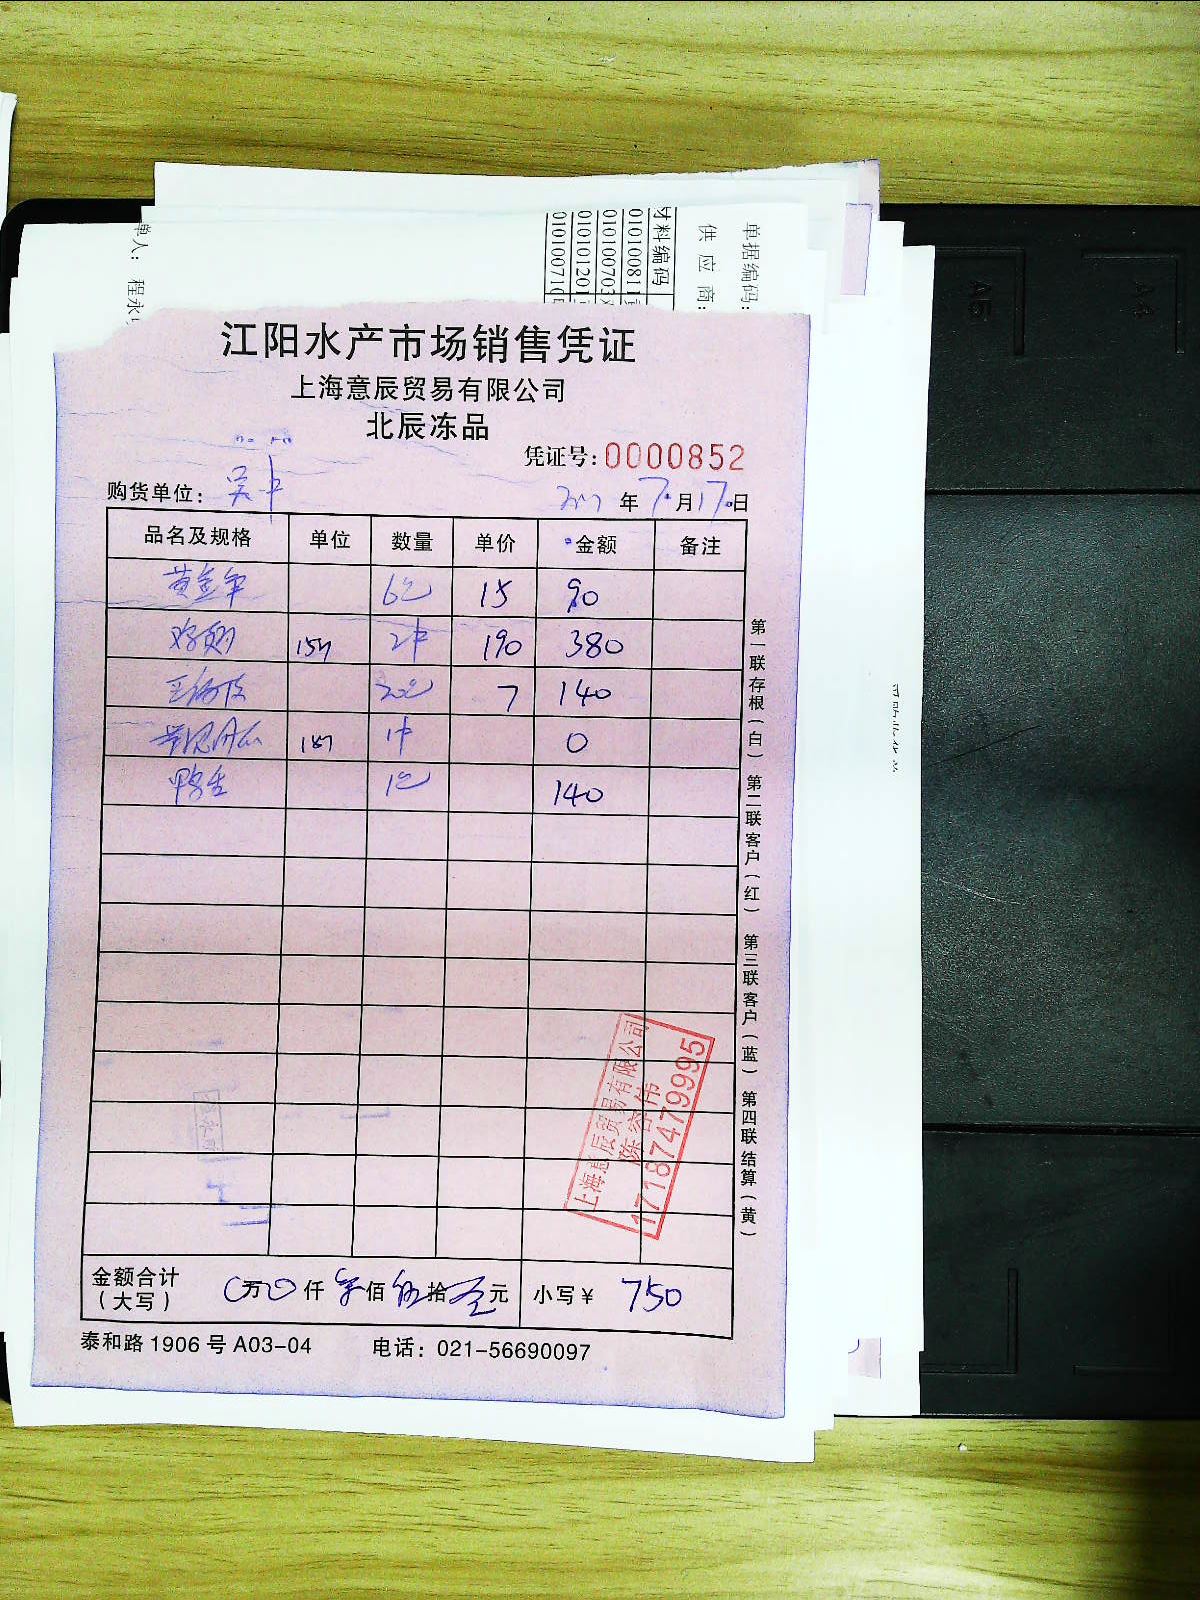 单据编码:
供应商:
材料编码
010100811
010100703
010101201
010100710
单人: 程永
江阳水产市场销售凭证
上海意辰贸易有限公司
北辰冻品
凭证号:0000852
购货单位: 吴中
年 7月17日
品名及规格 单位 数量 单价 金额 备注
6包 15 90
鸡翅 2件 190 380
20包 7 140
1件 0
鸭舌 1包 140
第一联存根(白) 第二联客户(红) 第三联客户(蓝) 第四联结算(黄)
上海意辰贸易有限公司
17187479995
金额合计(大写) 0万0仟柒佰伍拾元 小写¥ 750
泰和路1906号A03-04 电话: 021-56690097
A5
A4